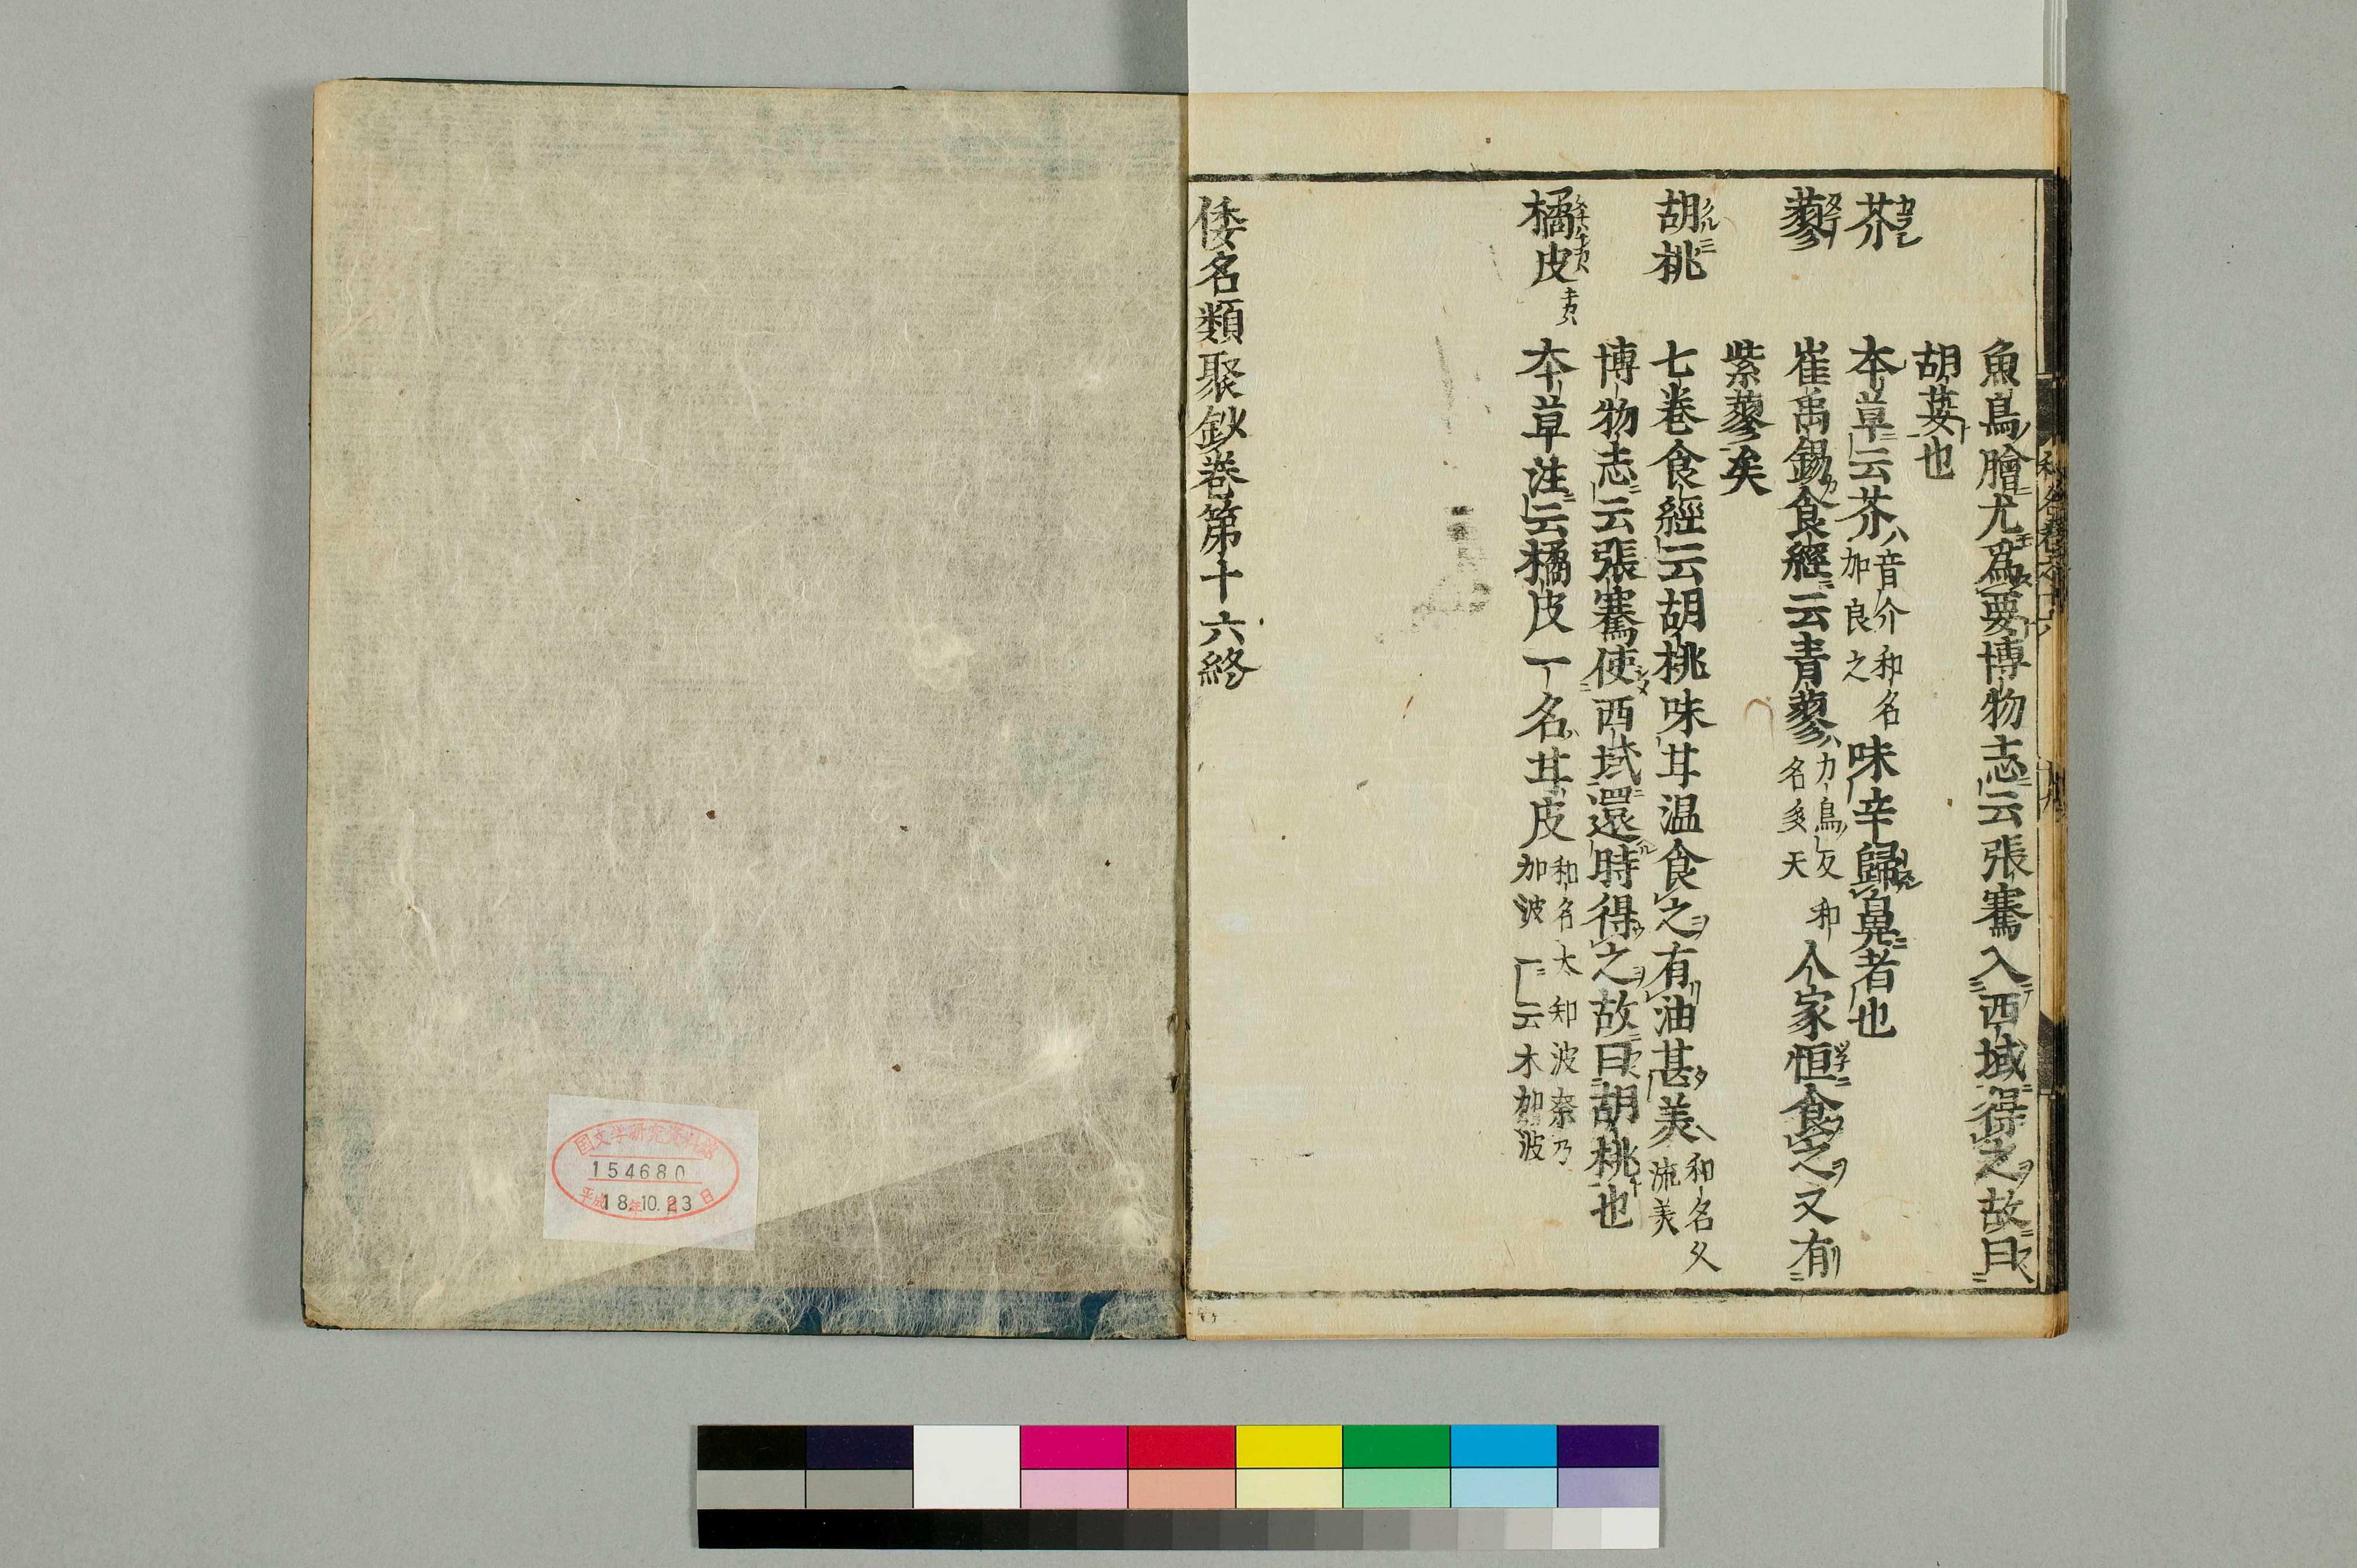 魚鳥膾尤爲要博物志云張騫入西域得之故曰
胡荽也
芥 本草云芥音介和名加良之味辛歸鼻者也
蓼 崔禹錫食經云青蓼力鳥反和名多天人家恒食之又有
紫蓼矣
胡桃 七卷食經云胡桃味甘温食之有油甚美和名久流美
博物志云張騫使西域還時得之故曰胡桃也
橘皮 本草注云橘皮一名甘皮和名太知波奈乃加波一云木加波
倭名類聚鈔卷第十六終
国文学研究資料館
154680
平成18年10.23日